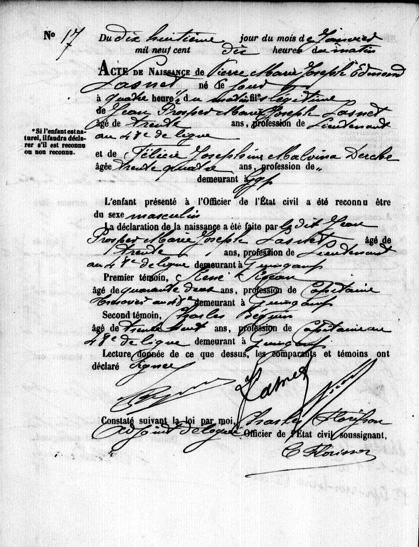 No 17
Du dix huitième jour du mois de Janvier
mil neuf cent dix heures du matin
ACTE DE NAISSANCE de Pierre Marie Joseph Edmond
Lasnet né ce jour
à quatre heures du matin fils légitime
de Jean Prosper Marie Joseph Lasnet
âgé de trente ans, profession de Lieutenant
au 48e de ligne
*Si l'enfant est na-
turel, il faudra décla-
rer s'il est reconnu
ou non reconnu.
et de Félicie Joséphine Malvina
âgée trente quatre ans, profession de
demeurant
L'enfant présenté à l'Officier de l'État civil a été reconnu être
du sexe masculin
La déclaration de la naissance a été faite par le dit Jean
Prosper Marie Joseph Lasnet âgé de
trente ans, profession de Lieutenant
au 48e de ligne demeurant à Guingamp
Premier témoin,
âgé de quarante deux ans, profession de Capitaine
au 48e demeurant à Guingamp
Second témoin, Charles
âgé de trente ans, profession de Capitaine au
48e de ligne demeurant à Guingamp
Lecture donnée de ce que dessus, les comparants et témoins ont
déclaré signer
Lasnet
Constaté suivant la loi par moi, Charles
Adjoint délégué Officier de l'État civil soussigné,